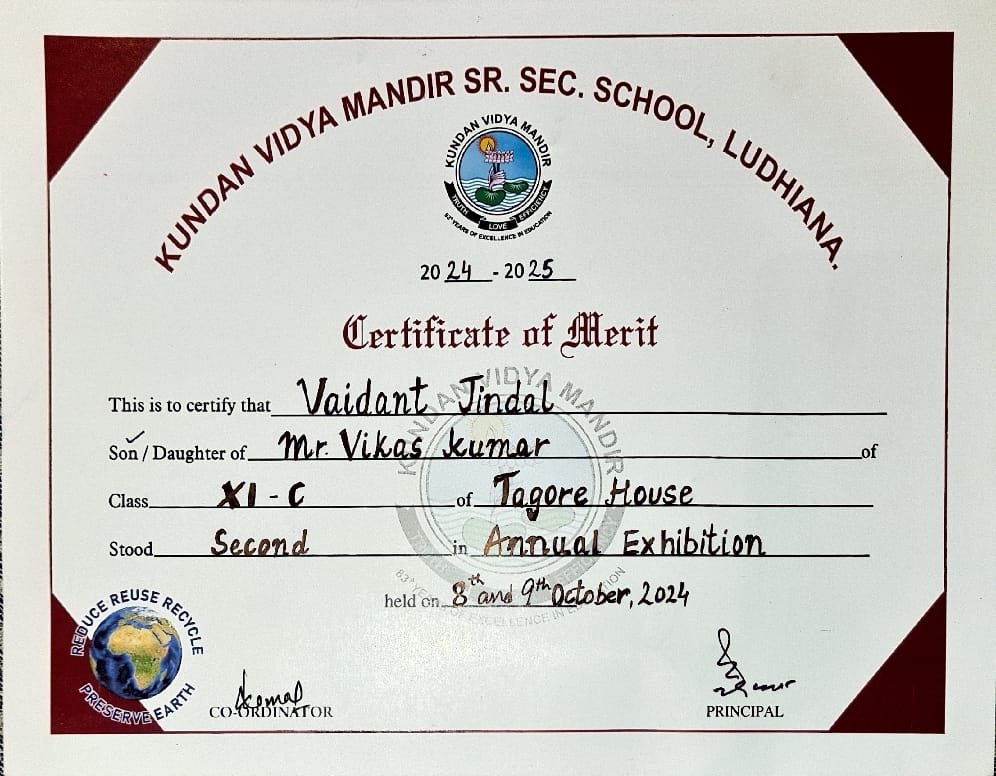 KUNDAN VIDYA MANDIR SR. SEC. SCHOOL, LUDHIANA.
KUNDAN VIDYA MANDIR
TRUTH LOVE EFFICIENCY
83rd YEARS OF EXCELLENCE IN EDUCATION
2024 - 2025
Certificate of Merit
This is to certify that Vaidant Jindal
Son / Daughter of Mr. Vikas Kumar of
Class XI - C of Tagore House
Stood Second in Annual Exhibition
held on 8th and 9th October, 2024
KUNDAN VIDYA MANDIR
REDUCE REUSE RECYCLE
PRESERVE EARTH
CO-ORDINATOR
PRINCIPAL